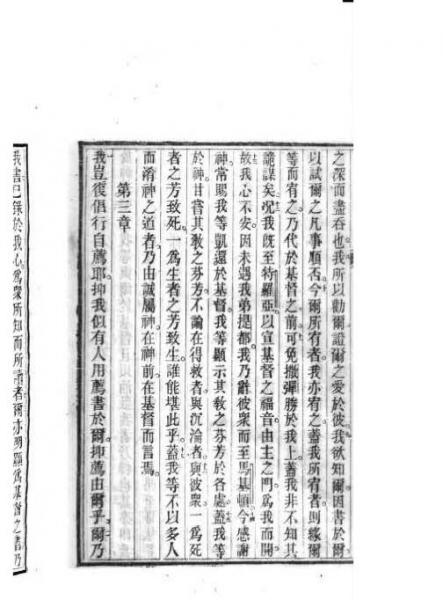 之深而盡吞也我所以勸爾證爾之愛於彼我欲知爾因書於爾
以試爾之凡事順否今爾所宥者我亦宥之蓋我所宥者則緣爾
等而宥之乃代於基督之前可免撒彈勝於我上蓋我非不知其
詭謀矣況我既至特羅亞以宣基督之福音由主之門為我而開
故我心不安因未遇我弟提都我乃辭彼眾而至馬基頓今感謝
神常賜我等凱還於基督我等顯示其教之芬芳於各處蓋我等
於神甘嘗其教之芬芳不論在得救者與沉淪者與彼眾一為死
者之芳致死一為生者之芳致生誰能堪此乎蓋我等不以多人
而淆神之道者乃由誠屬神在神前在基督而言焉
第三章
我豈復倡行自薦耶抑我似有人用薦書於爾抑薦由爾乎爾乃
我書已錄於我心為眾所知而所讀者爾亦明顯為基督之書乃